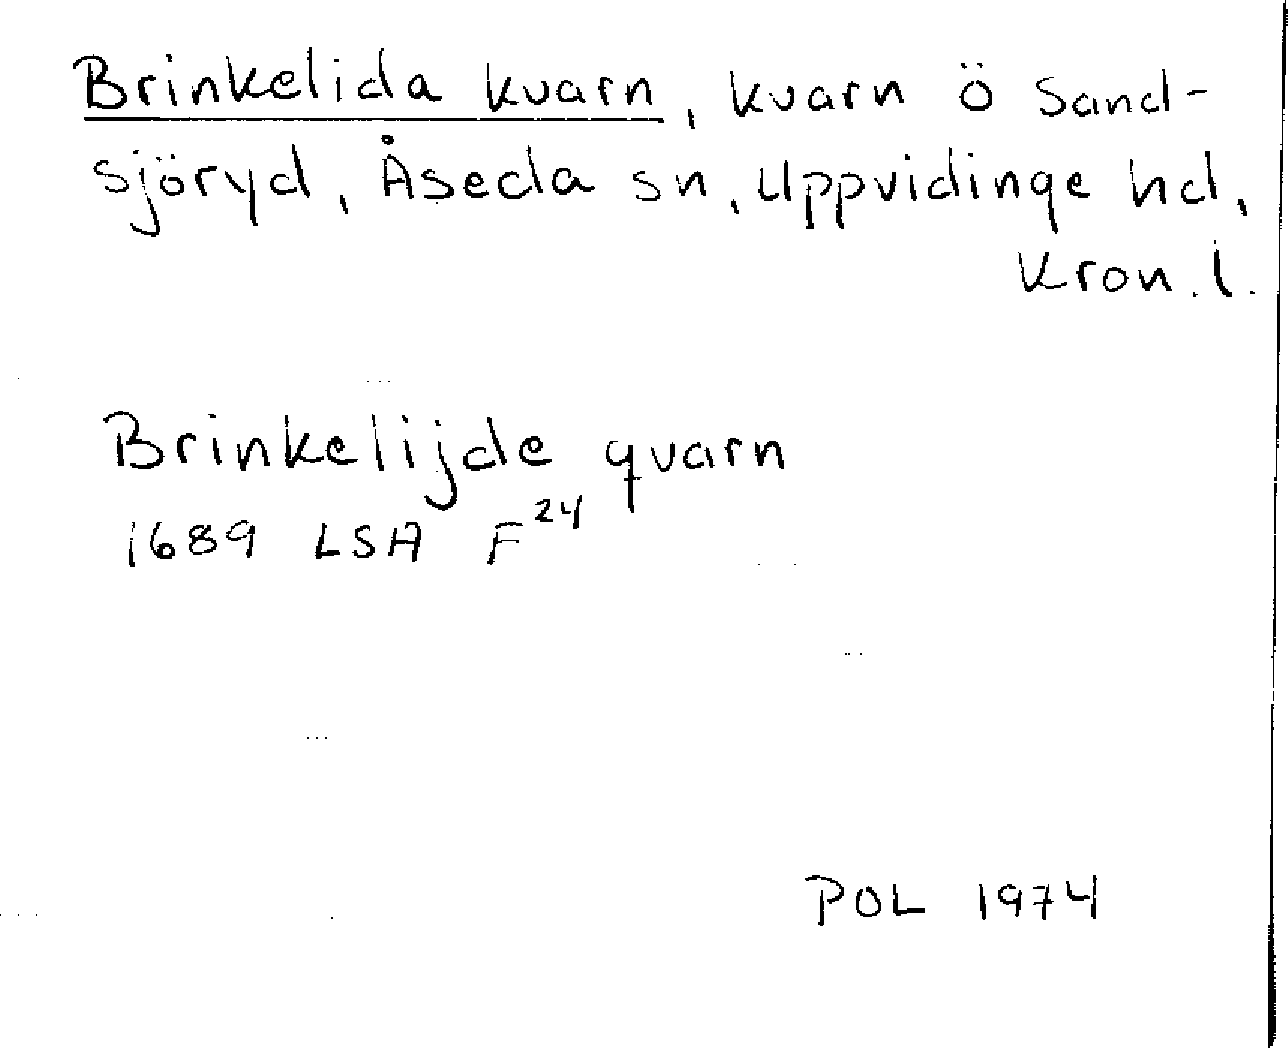 Brinkelida kvarn, kvarn ö Sand-
sjöryd, Åseda sn, Uppvidinge hd,
Kron. l.
Brinkelijde qvarn
1689 LSA F²⁴
POL 1974